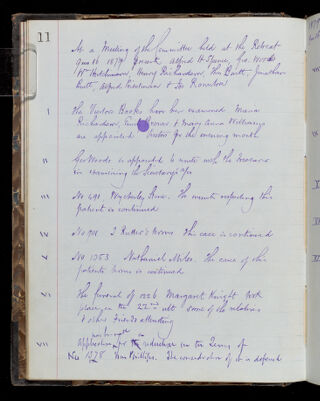 11
At a Meeting of the Committee held at the Retreat
16 1879 Present Alfred H Spence, Geo Woods
Wm Hutchinson, Henry Richardson, Thos Jonathan
Alfred & Jos Rowntree
I The Visitors Books have been examined Maria
Richardson, & Mary Anna Wellbury
are appointed Visitors for the ensuing month
II Geo Woods is appointed to unite with the Treasurer
in examining the Secretary's
III No 491 Wycherley The minute respecting this
patient is continued
IV No 901 J Rutter's The case is continued
V No 1353 Nathaniel Miles. The case of this
patients is continued
VI The funeral of 1226 Margaret Knight took
place on the 22nd ult some of the relations
& other Friends attending
VII Application for reduction in the Terms of
No 1378 Wm Phillips. The consideration of it is deferred